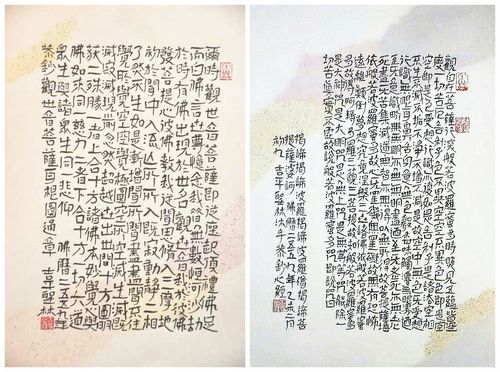 爾時觀世音菩薩即從座起頂禮佛足
而白佛言世尊憶念我昔無數恒河沙劫
於時有佛出現於世名觀世音我於彼佛
發菩提心彼佛教我從聞思修入三摩地
初於聞中入流亡所所入既寂動靜二相
了然不生如是漸增聞所聞盡盡聞不住
覺所覺空空覺極圓空所空滅生滅既
滅寂滅現前忽然超越世出世間十方圓明
獲二殊勝一者上合十方諸佛本妙覺心與
佛如來同一慈力二者下合十方一切六道
眾生與諸眾生同一悲仰 佛曆二五五九年
恭鈔觀世音菩薩耳根圓通章 聖林
觀自在菩薩行深般若波羅蜜多時照見五蘊皆空
度一切苦厄舍利子色不異空空不異色色即是空
空即是色受想行識亦復如是舍利子是諸法空相
不生不滅不垢不淨不增不減是故空中無色無受想
行識無眼耳鼻舌身意無色聲香味觸法無眼界乃
至無意識界無無明亦無無明盡乃至無老死亦無老
死盡無苦集滅道無智亦無得以無所得故菩提薩埵
依般若波羅蜜多故心無罣礙無罣礙故無有恐怖
遠離顛倒夢想究竟涅槃三世諸佛依般若波羅蜜
多故得阿耨多羅三藐三菩提故知般若波羅蜜多
是大神咒是大明咒是無上咒是無等等咒能除一
切苦真實不虛故說般若波羅蜜多咒即說咒曰
揭諦揭諦波羅揭諦波羅僧揭諦菩
提薩婆訶 佛曆二五五九年乙未二月
初九 聖林沐手恭鈔心經